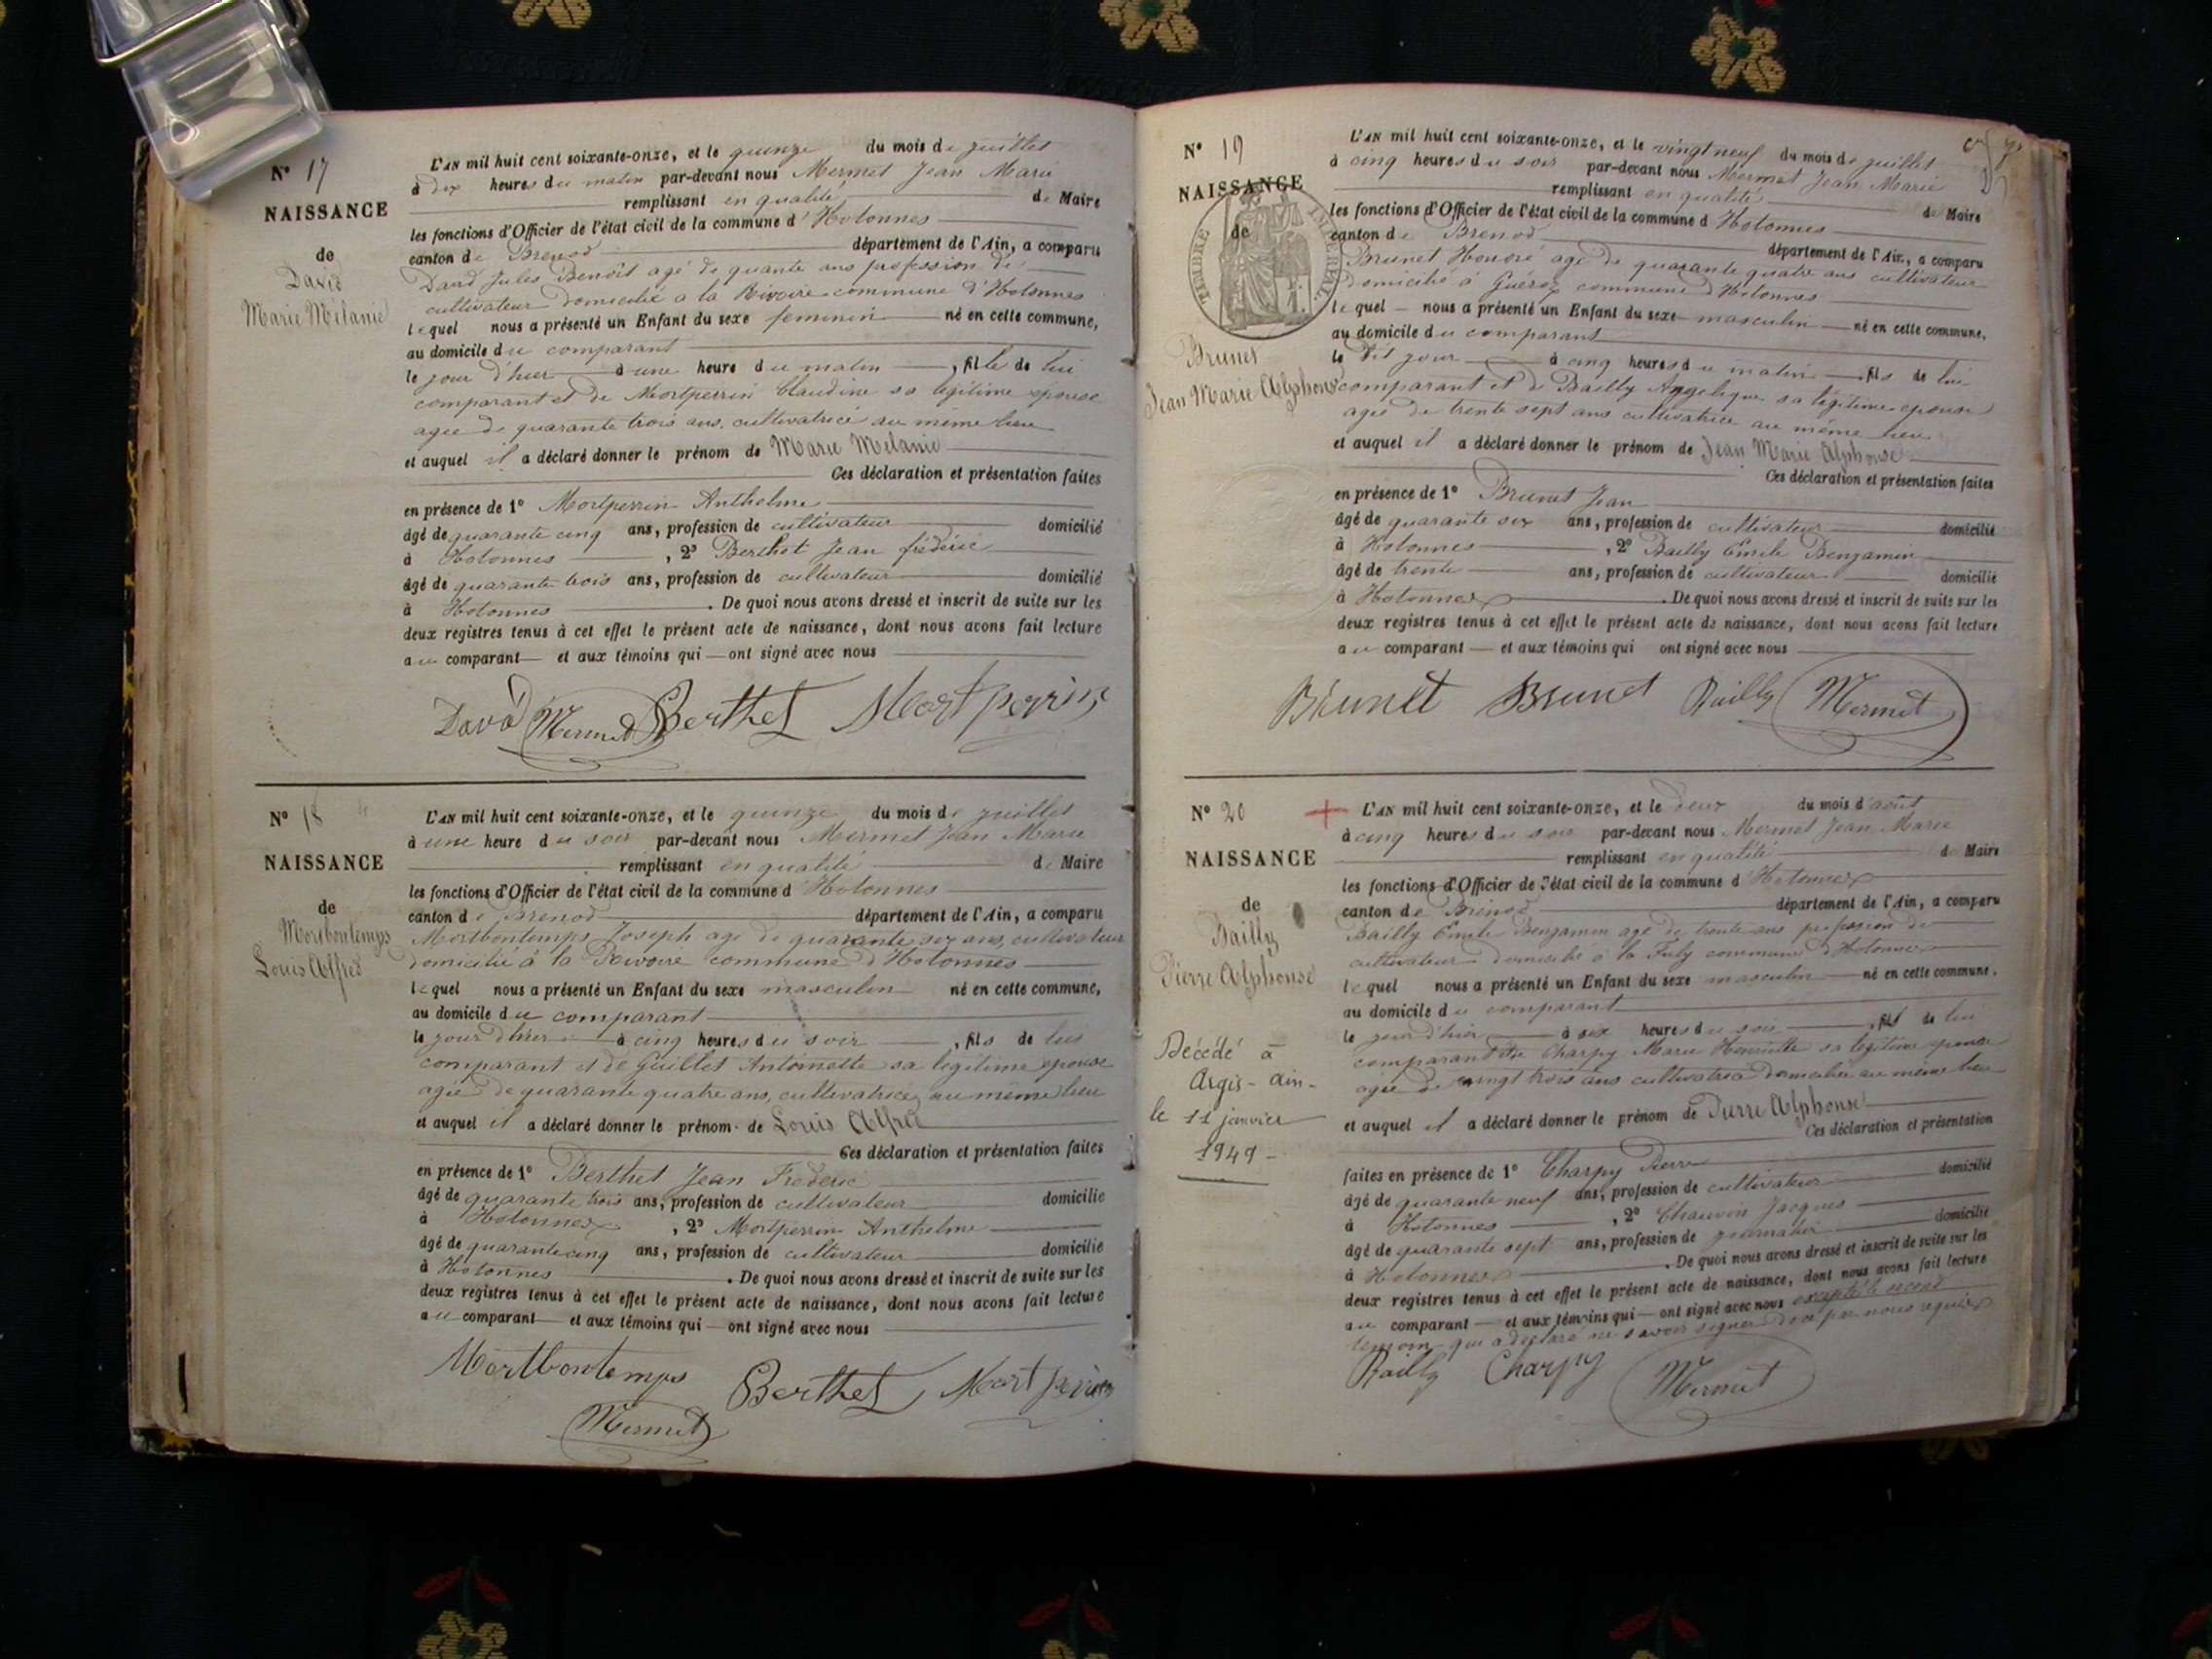 N° 17
NAISSANCE
de
David
Marie Mélanie
L'AN mil huit cent soixante-onze, et le quinze du mois de juillet
à dix heures du matin par-devant nous Mermet Jean Marie
remplissant en qualité de Maire
les fonctions d'Officier de l'état civil de la commune d'Hotonnes
canton de Brenod département de l'Ain, a comparu
David Jules Benoît agé de quante ans profession de
cultivateur domicilié a la Rivoire commune d'Hotonnes
lequel nous a présenté un Enfant du sexe feminin né en cette commune,
au domicile du comparant
le jour d'hier à une heure du matin, fille de lui
comparant et de Mortperrin Claudine sa légitime épouse
agée de quarante trois ans, cultivatrice au même lieu
et auquel il a déclaré donner le prénom de Marie Mélanie
Ces déclaration et présentation faites
en présence de 1° Mortperrin Anthelme
âgé de quarante cinq ans, profession de cultivateur domicilié
à Hotonnes, 2° Berthet Jean frédéric
âgé de quarante trois ans, profession de cultivateur domicilié
à Hotonnes. De quoi nous avons dressé et inscrit de suite sur les
deux registres tenus à cet effet le présent acte de naissance, dont nous avons fait lecture
au comparant et aux témoins qui ont signé avec nous
David Mermet Berthet Mortperrin
N° 18
NAISSANCE
de
Mortbontemps
Louis Alfred
L'AN mil huit cent soixante-onze, et le quinze du mois de juillet
à une heure du soir par-devant nous Mermet Jean Marie
remplissant en qualité de Maire
les fonctions d'Officier de l'état civil de la commune d'Hotonnes
canton de Brenod département de l'Ain, a comparu
Mortbontemps Joseph age de quarante six ans, cultivateur
domicilié à la commune d'Hotonnes
lequel nous a présenté un Enfant du sexe masculin né en cette commune,
au domicile du comparant
le jour d'hier à cinq heures du soir, fils de lui
comparant et de Guillet Antoinette sa légitime épouse
agée de quarante quatre ans, cultivatrice au même lieu
et auquel il a déclaré donner le prénom de Louis Alfred
Ces déclaration et présentation faites
en présence de 1° Berthet Jean Frédéric
âgé de quarante trois ans, profession de cultivateur domicilié
à Hotonnes, 2° Mortperrin Anthelme
âgé de quarante cinq ans, profession de cultivateur domicilié
à Hotonnes. De quoi nous avons dressé et inscrit de suite sur les
deux registres tenus à cet effet le présent acte de naissance, dont nous avons fait lecture
au comparant et aux témoins qui ont signé avec nous
Mortbontemps Berthet Mortperrin
Mermet
N° 19
NAISSANCE
de
TIMBRE IMPÉRIAL.
Brunet
Jean Marie Alphonse
L'AN mil huit cent soixante-onze, et le vingt neuf du mois de juillet
à cinq heures du soir par-devant nous Mermet Jean Marie
remplissant en qualité de Maire
les fonctions d'Officier de l'état civil de la commune d Hotonnes
canton de Brenod département de l'Ain, a comparu
Brunet Honoré agé de quarante quatre ans cultivateur
domicilié à commune d'Hotonnes
lequel nous a présenté un Enfant du sexe masculin né en cette commune,
au domicile du comparant
le dit jour à cinq heures du matin, fils de lui
comparant et de Bailly Angelique sa légitime épouse
agée de trente sept ans cultivatrice au même lieu
et auquel il a déclaré donner le prénom de Jean Marie Alphonse
Ces déclaration et présentation faites
en présence de 1° Brunet Jean
âgé de quarante six ans, profession de cultivateur domicilié
à Hotonnes, 2° Bailly Emile Benjamin
âgé de trente ans, profession de cultivateur domicilié
à Hotonnes. De quoi nous avons dressé et inscrit de suite sur les
deux registres tenus à cet effet le présent acte de naissance, dont nous avons fait lecture
au comparant et aux témoins qui ont signé avec nous
Brunet Brunet Bailly Mermet
N° 20
NAISSANCE
de
Bailly
Pierre Alphonse
Décédé à
Argis - Ain -
le 11 janvier
1949 -
L'AN mil huit cent soixante-onze, et le deux du mois d'août
à cinq heures du soir par-devant nous Mermet Jean Marie
remplissant en qualité de Maire
les fonctions d'Officier de l'état civil de la commune d'Hotonnes
canton de Brenod département de l'Ain, a comparu
Bailly Emile Benjamin age de trente ans profession de
cultivateur domicilié à la commune d'Hotonnes
lequel nous a présenté un Enfant du sexe masculin né en cette commune,
au domicile du comparant
le jour d'hier à six heures du soir, fils de lui
comparant et de Charpy Marie Henriette sa légitime épouse
agée de vingt trois ans cultivatrice domiciliée au même lieu
et auquel il a déclaré donner le prénom de Pierre Alphonse
Ces déclaration et présentation
faites en présence de 1° Charpy Pierre
âgé de quarante neuf ans, profession de cultivateur domicilié
à Hotonnes, 2° Chauvin Jacques
âgé de quarante sept ans, profession de journalier domicilié
à Hotonnes. De quoi nous avons dressé et inscrit de suite sur les
deux registres tenus à cet effet le présent acte de naissance, dont nous avons fait lecture
au comparant et aux témoins qui ont signé avec nous excepté le second
témoin qui a déclaré ne savoir signer de ce par nous requis
Bailly Charpy Mermet